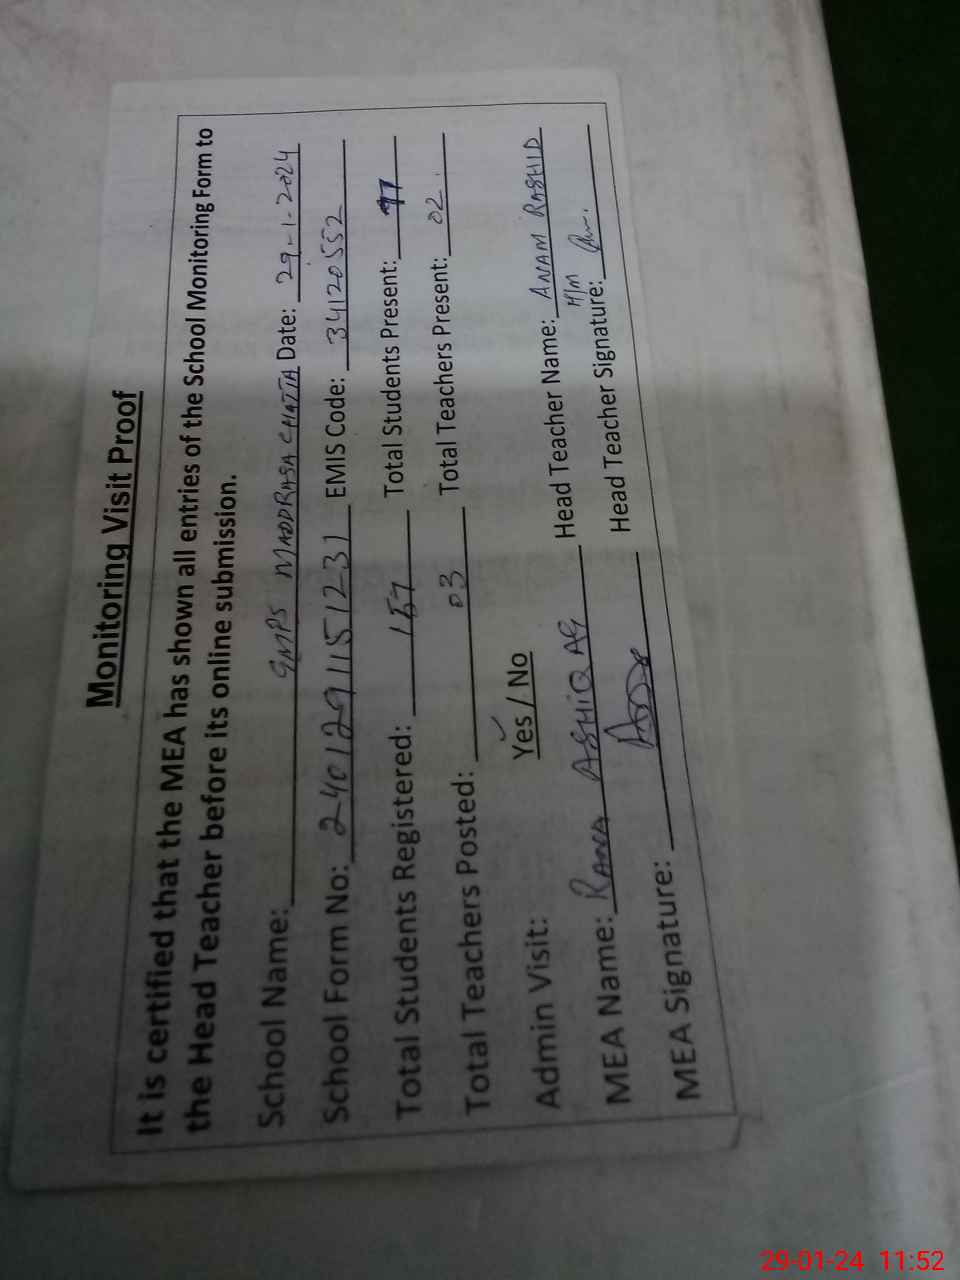 Monitoring Visit Proof
It is certified that the MEA has shown all entries of the School Monitoring Form to
the Head Teacher before its online submission.
School Name: GMPS MADDRASA CHATTA Date: 29-1-2024
School Form No: 2401291151231 EMIS Code: 34120552
Total Students Registered: 157 Total Students Present: 97
Total Teachers Posted: 03 Total Teachers Present: 02.
Admin Visit: Yes / No
MEA Name: RANA ASHIQ Head Teacher Name: ANAM RASHID
H/M
MEA Signature: Head Teacher Signature:
29-01-24 11:52